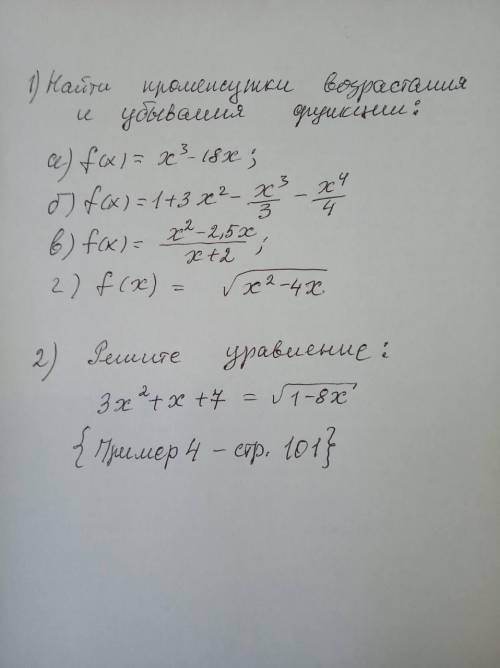 1) Найти промежутки возрастания
и убывания функции:
а) f(x) = x³ - 18x ;
б) f(x) = 1 + 3x² - x³/3 - x⁴/4
в) f(x) = (x² - 2,5x)/(x + 2) ;
г) f(x) = √(x² - 4x)
2) Решите уравнение:
3x² + x + 7 = √(1 - 8x)
{Пример 4 - стр. 101}